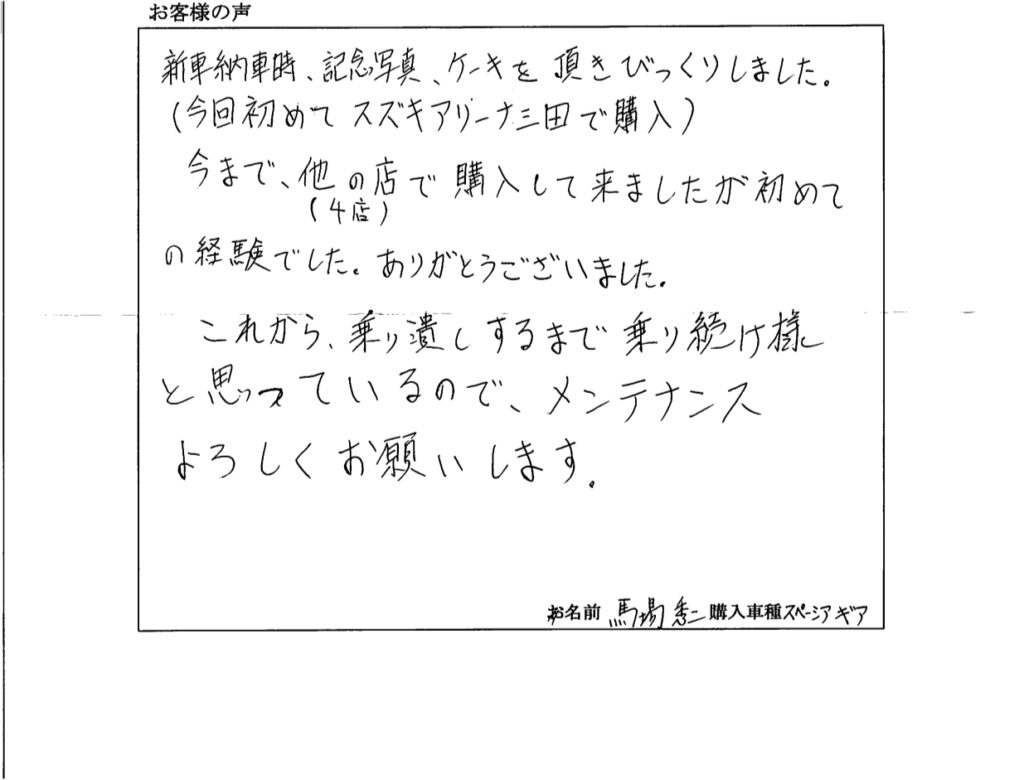 お客様の声
新車納車時、記念写真、ケーキを頂きびっくりしました。
(今回初めてスズキアリーナ三田で購入)
今まで、他の店で購入して来ましたが初めて
(4店)
の経験でした。ありがとうございました。
これから、乗り潰しするまで乗り続け様
と思っているので、メンテナンス
よろしくお願いします。
お名前 馬場秀二 購入車種スペーシアギア